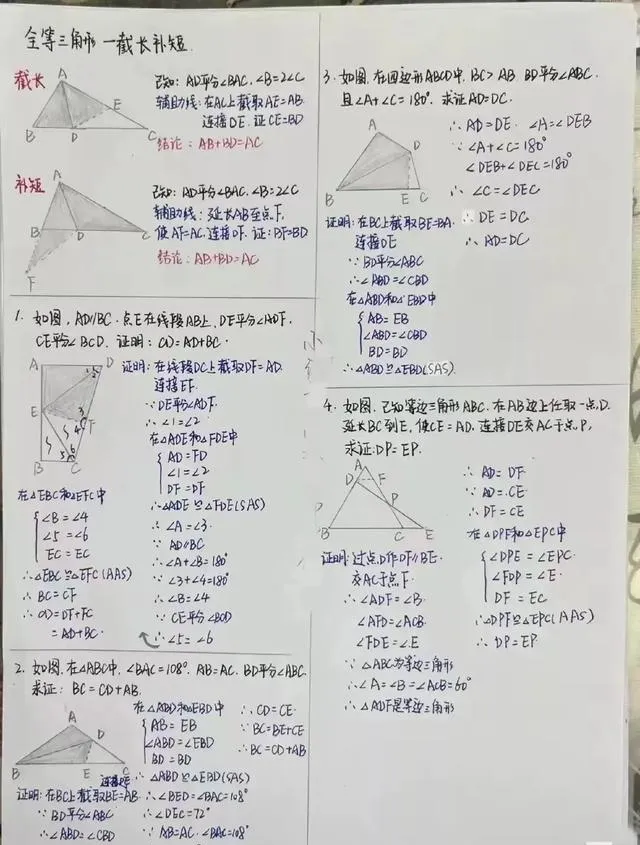 全等三角形—截长补短.
截长
A
B
D
C
E
已知: AD平分∠BAC, ∠B=2∠C
辅助线: 在AC上截取AE=AB.
连接DE. 证CE=BD
结论: AB+BD=AC
补短
A
B
D
C
F
已知: AD平分∠BAC, ∠B=2∠C
辅助线: 延长AB至点F,
使AF=AC, 连接DF. 证: BF=BD
结论: AB+BD=AC
1. 如图, AD//BC. 点E在线段AB上, DE平分∠ADF.
CE平分∠BCD. 证明: CD=AD+BC.
A
D
E
F
B
C
证明: 在线段DC上截取DF=AD.
连接EF.
∵DE平分∠ADF.
∴∠1=∠2
在△ADE和△FDE中
AD=FD
∠1=∠2
DF=DF
∴△ADE≌△FDE(SAS)
∴∠A=∠3.
∵AD//BC
∴∠A+∠B=180°
∵∠3+∠4=180°
∴∠B=∠4
∵CE平分∠BCD
∴∠5=∠6
在△EBC和△EFC中
∠B=∠4
∠5=∠6
EC=EC
∴△EBC≌△EFC(AAS)
∴BC=CF
∴CD=DF+FC
=AD+BC.
2. 如图. 在△ABC中, ∠BAC=108°. AB=AC. BD平分∠ABC.
求证: BC=CD+AB.
A
D
B
E
C
连接DE
证明: 在BC上截取BE=AB.
∵BD平分∠ABC
∴∠ABD=∠CBD
在△ABD和△EBD中
AB=EB
∠ABD=∠EBD
BD=BD
∴△ABD≌△EBD(SAS)
∴∠BED=∠BAC=108°
∴∠DEC=72°
∵AB=AC. ∠BAC=108°
∴CD=CE.
∵BC=BE+CE
∴BC=CD+AB
3. 如图. 在四边形ABCD中, BC>AB. BD平分∠ABC.
且∠A+∠C=180°. 求证AD=DC.
A
D
B
E
C
证明: 在BC上截取BE=BA.
连接DE
∵BD平分∠ABC
∴∠ABD=∠CBD
在△ABD和△EBD中
AB=EB
∠ABD=∠CBD
BD=BD
∴△ABD≌△EBD(SAS).
∴AD=DE. ∠A=∠DEB
∵∠A+∠C=180°
∠DEB+∠DEC=180°
∴∠C=∠DEC
∴DE=DC
∴AD=DC
4. 如图. 已知等边三角形ABC. 在AB边上任取一点D.
延长BC到E, 使CE=AD. 连接DE交AC于点P,
求证: DP=EP.
A
D
F
P
B
C
E
证明: 过点D作DF//BE.
交AC于点F.
∴∠ADF=∠B.
∠AFD=∠ACB.
∠FDE=∠E
∵△ABC为等边三角形
∴∠A=∠B=∠ACB=60°
∴△ADF是等边三角形
∴AD=DF
∵AD=CE
∴DF=CE
在△DPF和△EPC中
∠DPE=∠EPC.
∠FDP=∠E.
DF=EC
∴△DPF≌△EPC(AAS)
∴DP=EP